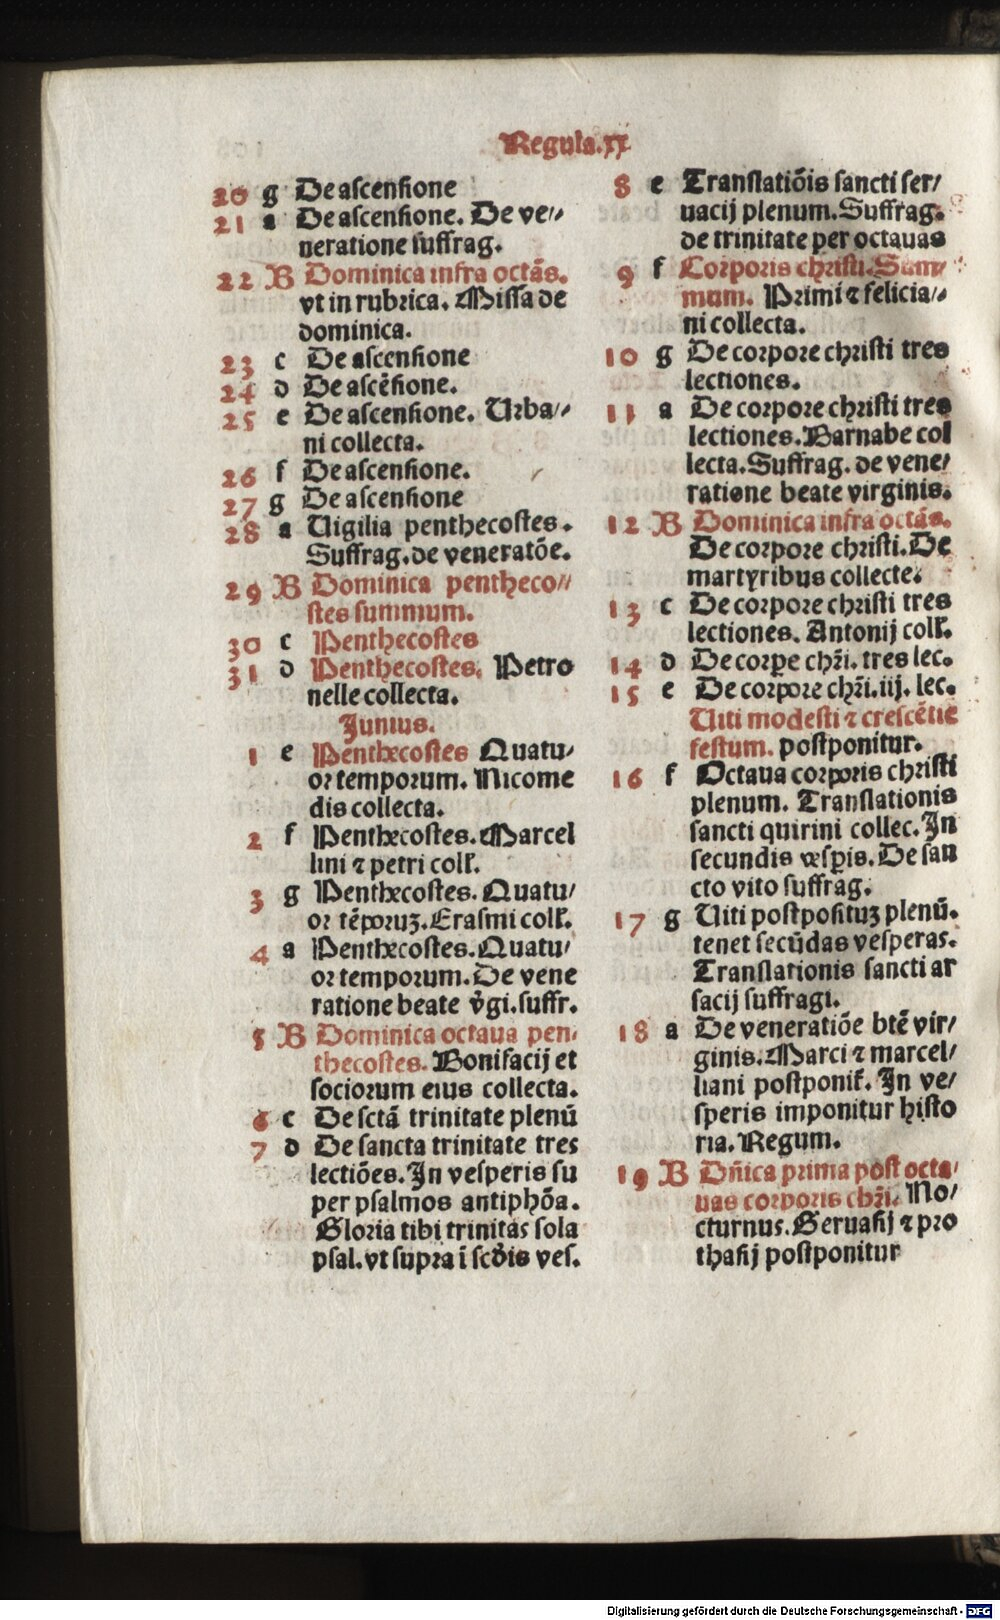 Regula.II
20 g De ascensione
21 a De ascensione. De ve//
neratione suffrag.
22 B Dominica infra octās.
vt in rubrica. Missa de
dominica.
23 c De ascensione
24 d De ascēsione.
25 e De ascensione. Urba//
ni collecta.
26 f De ascensione.
27 g De ascensione
28 a Uigilia penthecostes.
Suffrag. de veneratōe.
29 B Dominica pentheco//
stes summum.
30 c Penthecostes
31 d Penthecostes. Petro
nelle collecta.
Junius.
1 e Penthecostes Quatu/
or temporum. Nicome
dis collecta.
2 f Penthecostes. Marcel
lini ⁊ petri coll'.
3 g Penthecostes. Quatu/
or tēporuꝫ. Erasmi coll'.
4 a Penthecostes. Quatu/
or temporum. De vene
ratione beate v̄gi. suffr.
5 B Dominica octaua pen/
thecostes. Bonifacij et
sociorum eius collecta.
6 c De sctā trinitate plenū
7 d De sancta trinitate tres
lectiōes. In vesperis su
per psalmos antiphōa.
Gloria tibi trinitas sola
psal. vt supra ī scd̄is ves.
8 e Translatiōis sancti ser/
uacij plenum. Suffrag.
de trinitate per octauas
9 f Corporis christi. Sum/
mum. Primi ⁊ felicia//
ni collecta.
10 g De corpore christi tres
lectiones.
11 a De corpore christi tres
lectiones. Barnabe col
lecta. Suffrag. de vene/
ratione beate virginis.
12 B Dominica infra octās.
De corpore christi. De
martyribus collecte.
13 c De corpore christi tres
lectiones. Antonij coll'.
14 d De corꝑe chr̄i. tres lec.
15 e De corpore chr̄i. iij. lec.
Uiti modesti ⁊ crescētie
festum. postponitur.
16 f Octaua corporis christi
plenum. Translationis
sancti quirini collec. In
secundis vesꝑis. De san
cto vito suffrag.
17 g Uiti postposituꝫ plenū.
tenet secūdas vesperas.
Translationis sancti ar
sacij suffragi.
18 a De veneratiōe btē vir/
ginis. Marci ⁊ marcel/
liani postponit'. In ve/
speris imponitur histo
ria. Regum.
19 B Dn̄ica prima post octa/
uas corporis chr̄i. No/
cturnus. Geruasij ⁊ pro
thasij postponitur
Digitalisierung gefördert durch die Deutsche Forschungsgemeinschaft - DFG